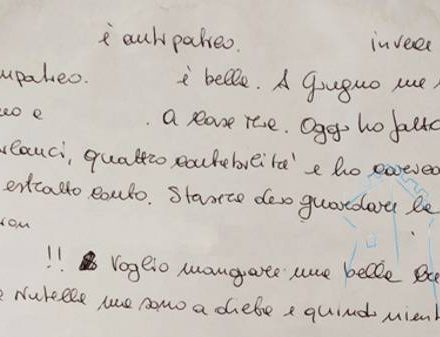 è antipatico. invece
mpatico. è bella. A Giugno me
no e . A casa mia. Oggi ho fatto
bilanci, quattro contabilità e ho
estratto conto. Stasera devo guardare la
!! Voglio mangiare una bella
Nutella ma sono a dieta e quindi nient